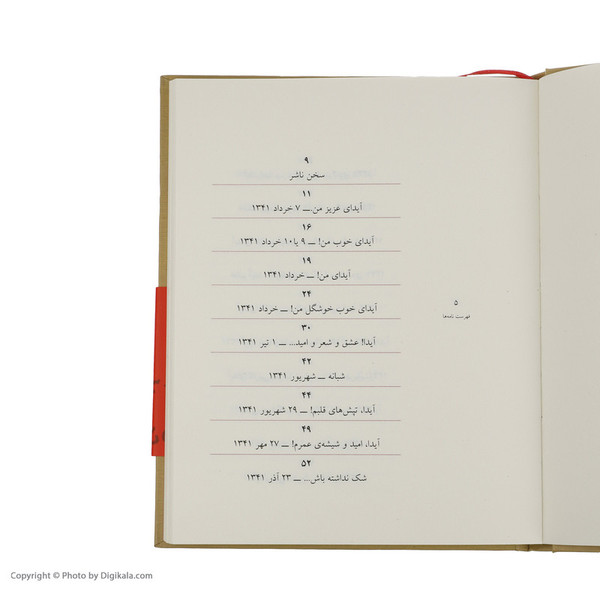 ۹
سخن ناشر
۱۱
آیدای عزیز من... ـــ ۷ خرداد ۱۳۴۱
۱۶
آیدای خوب من! ـــ ۹ یا ۱۰ خرداد ۱۳۴۱
۱۹
آیدای من! ـــ خرداد ۱۳۴۱
۲۴
آیدای خوب خوشگل من! ـــ خرداد ۱۳۴۱
۳۰
آیدا! عشق و شعر و امید... ـــ ۱ تیر ۱۳۴۱
۴۲
شبانه ـــ شهریور ۱۳۴۱
۴۴
آیدا، تپش‌های قلبم! ـــ ۲۹ شهریور ۱۳۴۱
۴۹
آیدا، امید و شیشه‌ی عمرم! ـــ ۲۷ مهر ۱۳۴۱
۵۲
شک نداشته باش... ـــ ۲۳ آذر ۱۳۴۱
۵
فهرست نامه‌ها
Copyright © Photo by Digikala.com